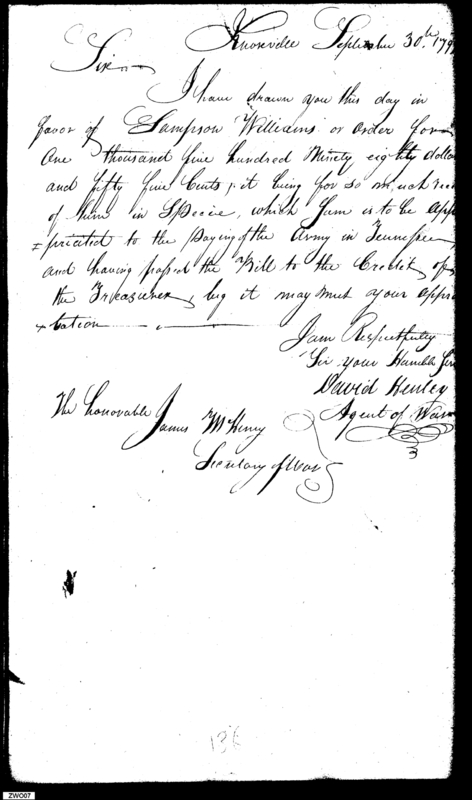 Knoxville September 30th. 179
Sir
I have drawn you this day in
favor of Sampson Williams or order for
One thousand five hundred Ninety eighty dolla
and fifty five Cents, it being for so much rec
of him in Specie, which Sum is to be app
=priated to the Paying of the Army in Tennessee,
and having passed the Bill to the Credit of
the Treasurer, beg it may meet your appro
=bation
I am Respectfully
Sir your Humble Serv
David Henley
Agent of War
The honorable
James McHenry
Secretary of War
136
ZWO07